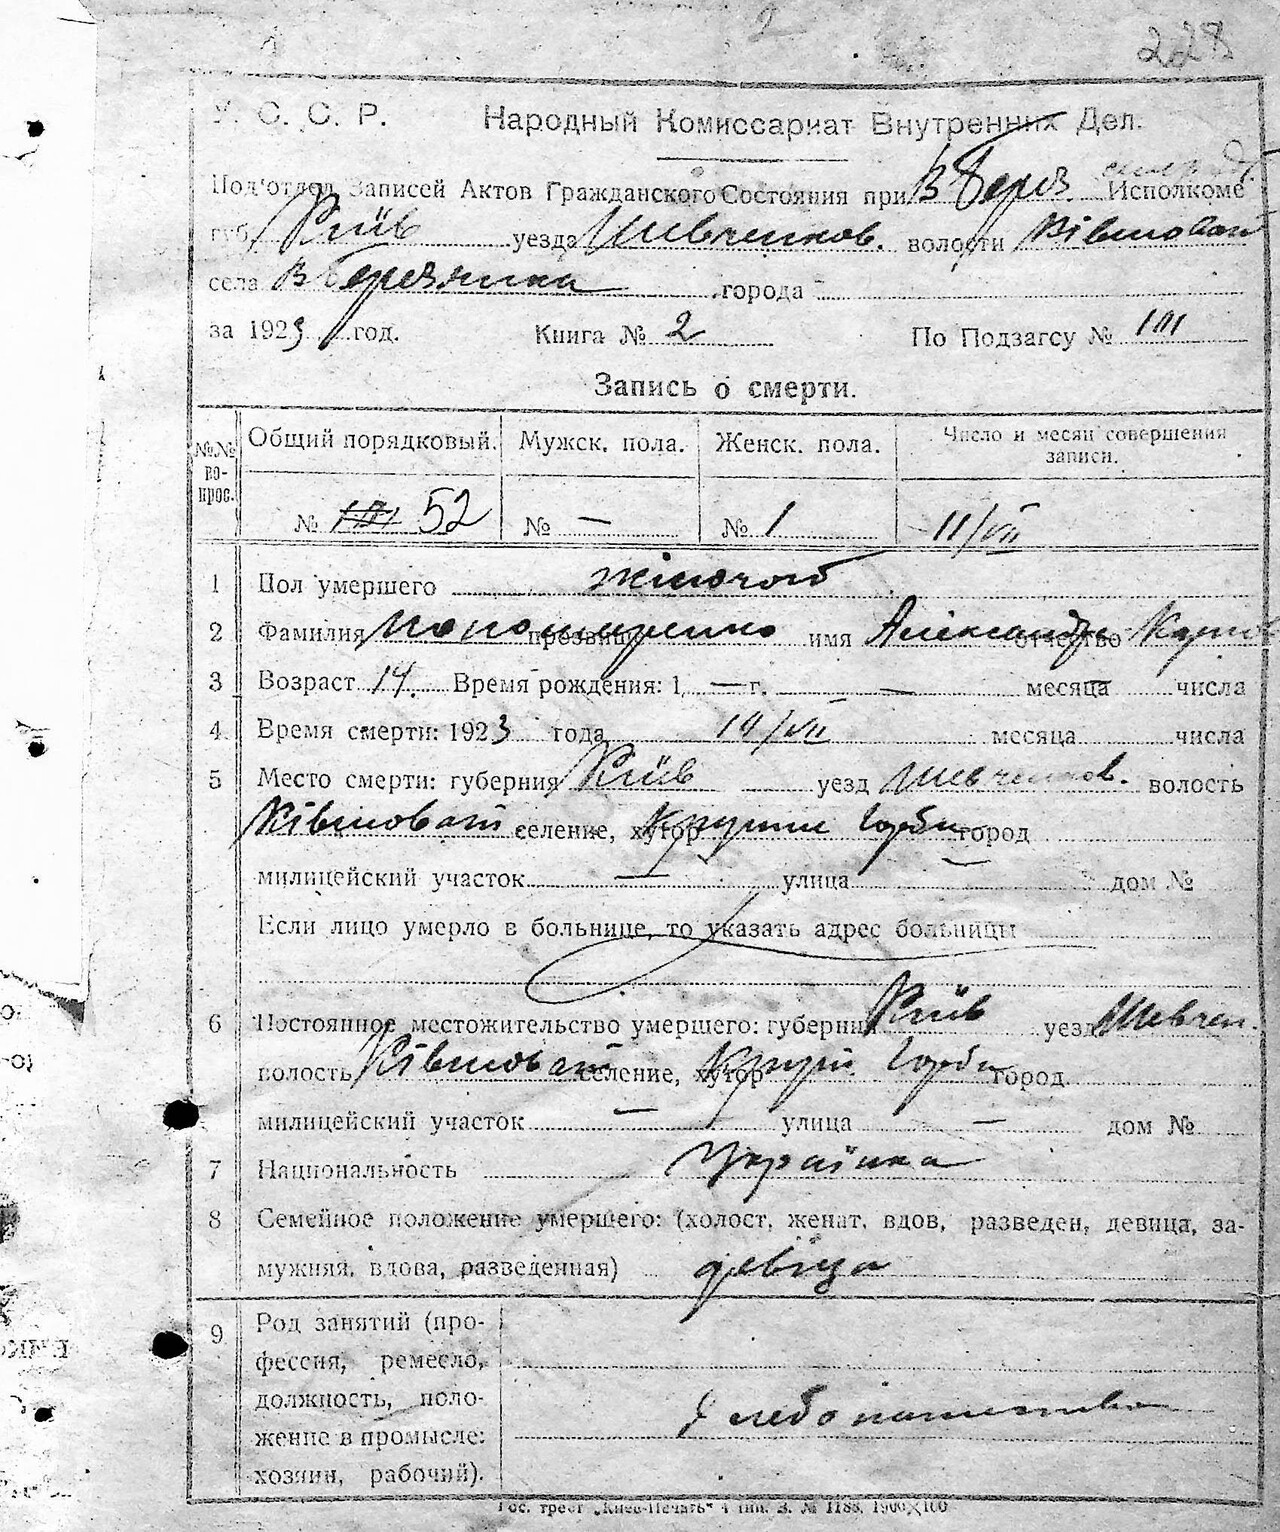 2
228
У. С. С. Р. Народный Комиссариат Внутренних Дел.
Под'отдел Записей Актов Гражданского Состояния при В Берез. Исполкоме
губ. Київ уезда Шевченков. волости Ківшовати
села В Березянка города
за 1923 год. Книга № 2 По Подзагсу № 101
Запись о смерти.
№№ вопрос. Общий порядковый. Мужск. пола. Женск. пола. Число и месяц совершения
записи.
№ 101 52 № — № 1 11/VII
1 Пол умершего жіночой
2 Фамилия Пономаренко прозвище имя Александра отчество Карпов
3 Возраст 14. Время рождения: 1 — г. — месяца числа
4 Время смерти: 1923 года 14/VII месяца числа
5 Место смерти: губерния Київ уезд Шевченков. волость
Ківшоват селение, хутор Круті Горби город
милицейский участок — улица — дом №
Если лицо умерло в больнице, то указать адрес больницы
6 Постоянное местожительство умершего: губерния Київ уезд Шевчен.
волость Ківшоват селение, хутор Круті Горби город
милицейский участок — улица — дом №
7 Национальность Українка
8 Семейное положение умершего: (холост, женат, вдов, разведен, девица, за-
мужняя, вдова, разведенная) девіца
9 Род занятий (про-
фессия, ремесло,
должность, поло-
жение в промысле:
хозяин, рабочий).
Хлебопашество
Гос. трест „Киев-Печать" 4 тип. З. № 1188. 1900×100